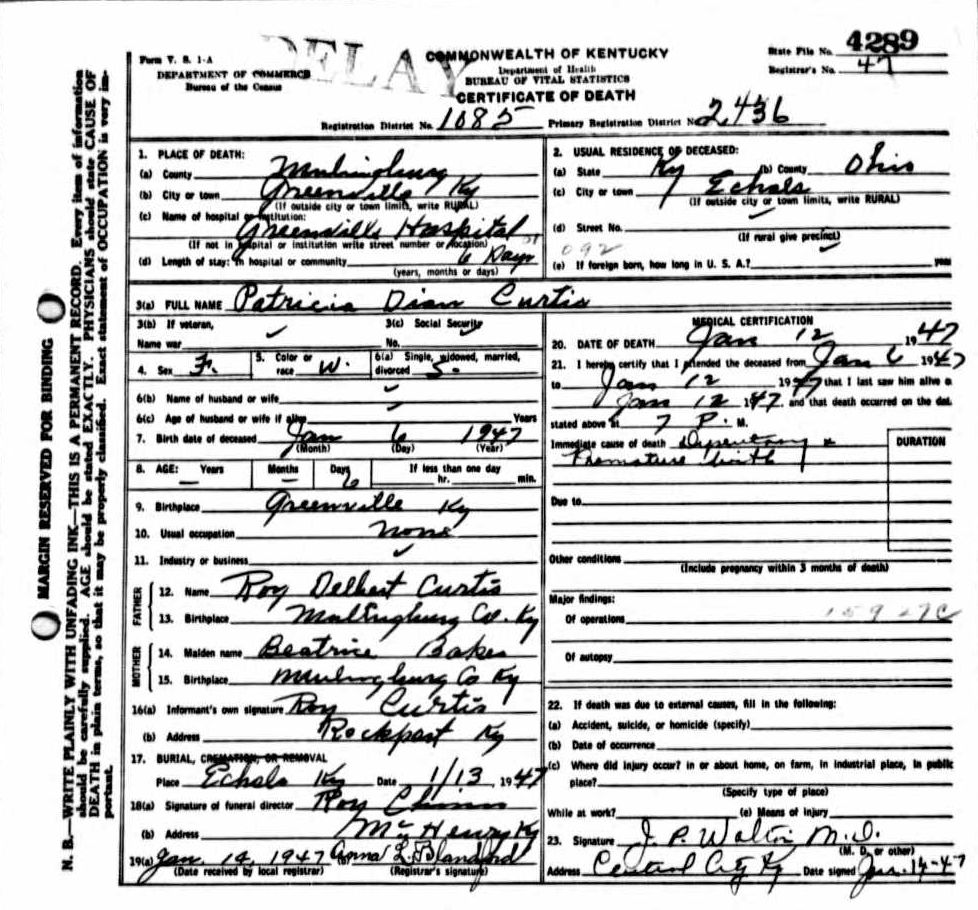 MARGIN RESERVED FOR BINDING
N. B.—WRITE PLAINLY WITH UNFADING INK—THIS IS A PERMANENT RECORD. Every item of information
should be carefully supplied. AGE should be stated EXACTLY. PHYSICIANS should state CAUSE OF
DEATH in plain terms, so that it may be properly classified. Exact statement of OCCUPATION is very im-
portant.
DELAY
Form V. S. 1-A
DEPARTMENT OF COMMERCE
Bureau of the Census
COMMONWEALTH OF KENTUCKY
Department of Health
BUREAU OF VITAL STATISTICS
CERTIFICATE OF DEATH
State File No. 4289
Registrar's No. 47
Registration District No. 1085 Primary Registration District No. 2436
1. PLACE OF DEATH:
(a) County
(b) City or town Greenville Ky
(If outside city or town limits, write RURAL)
(c) Name of hospital or institution:
Greenville Hospital
(If not in hospital or institution write street number or location)
(d) Length of stay: In hospital or community 6 Days
(years, months or days)
2. USUAL RESIDENCE OF DECEASED:
(a) State Ky (b) County Ohio
(c) City or town Echols
(If outside city or town limits, write RURAL)
(d) Street No.
(If rural give precinct)
092
(e) If foreign born, how long in U. S. A.? years
3(a) FULL NAME Patricia Dian Curtis
3(b) If veteran,
Name war
3(c) Social Security
No.
4. Sex F. 5. Color or race W. 6(a) Single, widowed, married, divorced S.
6(b) Name of husband or wife
6(c) Age of husband or wife if alive Years
7. Birth date of deceased Jan 6 1947
(Month) (Day) (Year)
8. AGE: Years Months Days If less than one day
— — 6 hr. min.
9. Birthplace Greenville Ky
10. Usual occupation none
11. Industry or business
FATHER
12. Name Roy Delbert Curtis
13. Birthplace Co. Ky
MOTHER
14. Maiden name Beatrice Baker
15. Birthplace Co Ky
16(a) Informant's own signature Roy Curtis
(b) Address Rockport Ky
17. BURIAL, CREMATION, OR REMOVAL
Place Echols Ky Date 1/13, 1947
18(a) Signature of funeral director Roy
(b) Address McHenry Ky
19(a) Jan. 14, 1947 Anna L. Blandford
(Date received by local registrar) (Registrar's signature)
MEDICAL CERTIFICATION
20. DATE OF DEATH Jan 12 1947
21. I hereby certify that I attended the deceased from Jan 6 1947
to Jan 12 1947 that I last saw him alive o
Jan 12 1947 and that death occurred on the dat
stated above at 7 P. M.
Immediate cause of death &
Premature birth
DURATION
Due to
Other conditions
(Include pregnancy within 3 months of death)
Major findings:
Of operations
Of autopsy
22. If death was due to external causes, fill in the following:
(a) Accident, suicide, or homicide (specify)
(b) Date of occurrence
(c) Where did injury occur? in or about home, on farm, in industrial place, in public
place?
(Specify type of place)
While at work? (e) Means of injury
23. Signature J. P. Walton M.D.
(M. D. or other)
Address Central City Ky Date signed Jan. 14-47